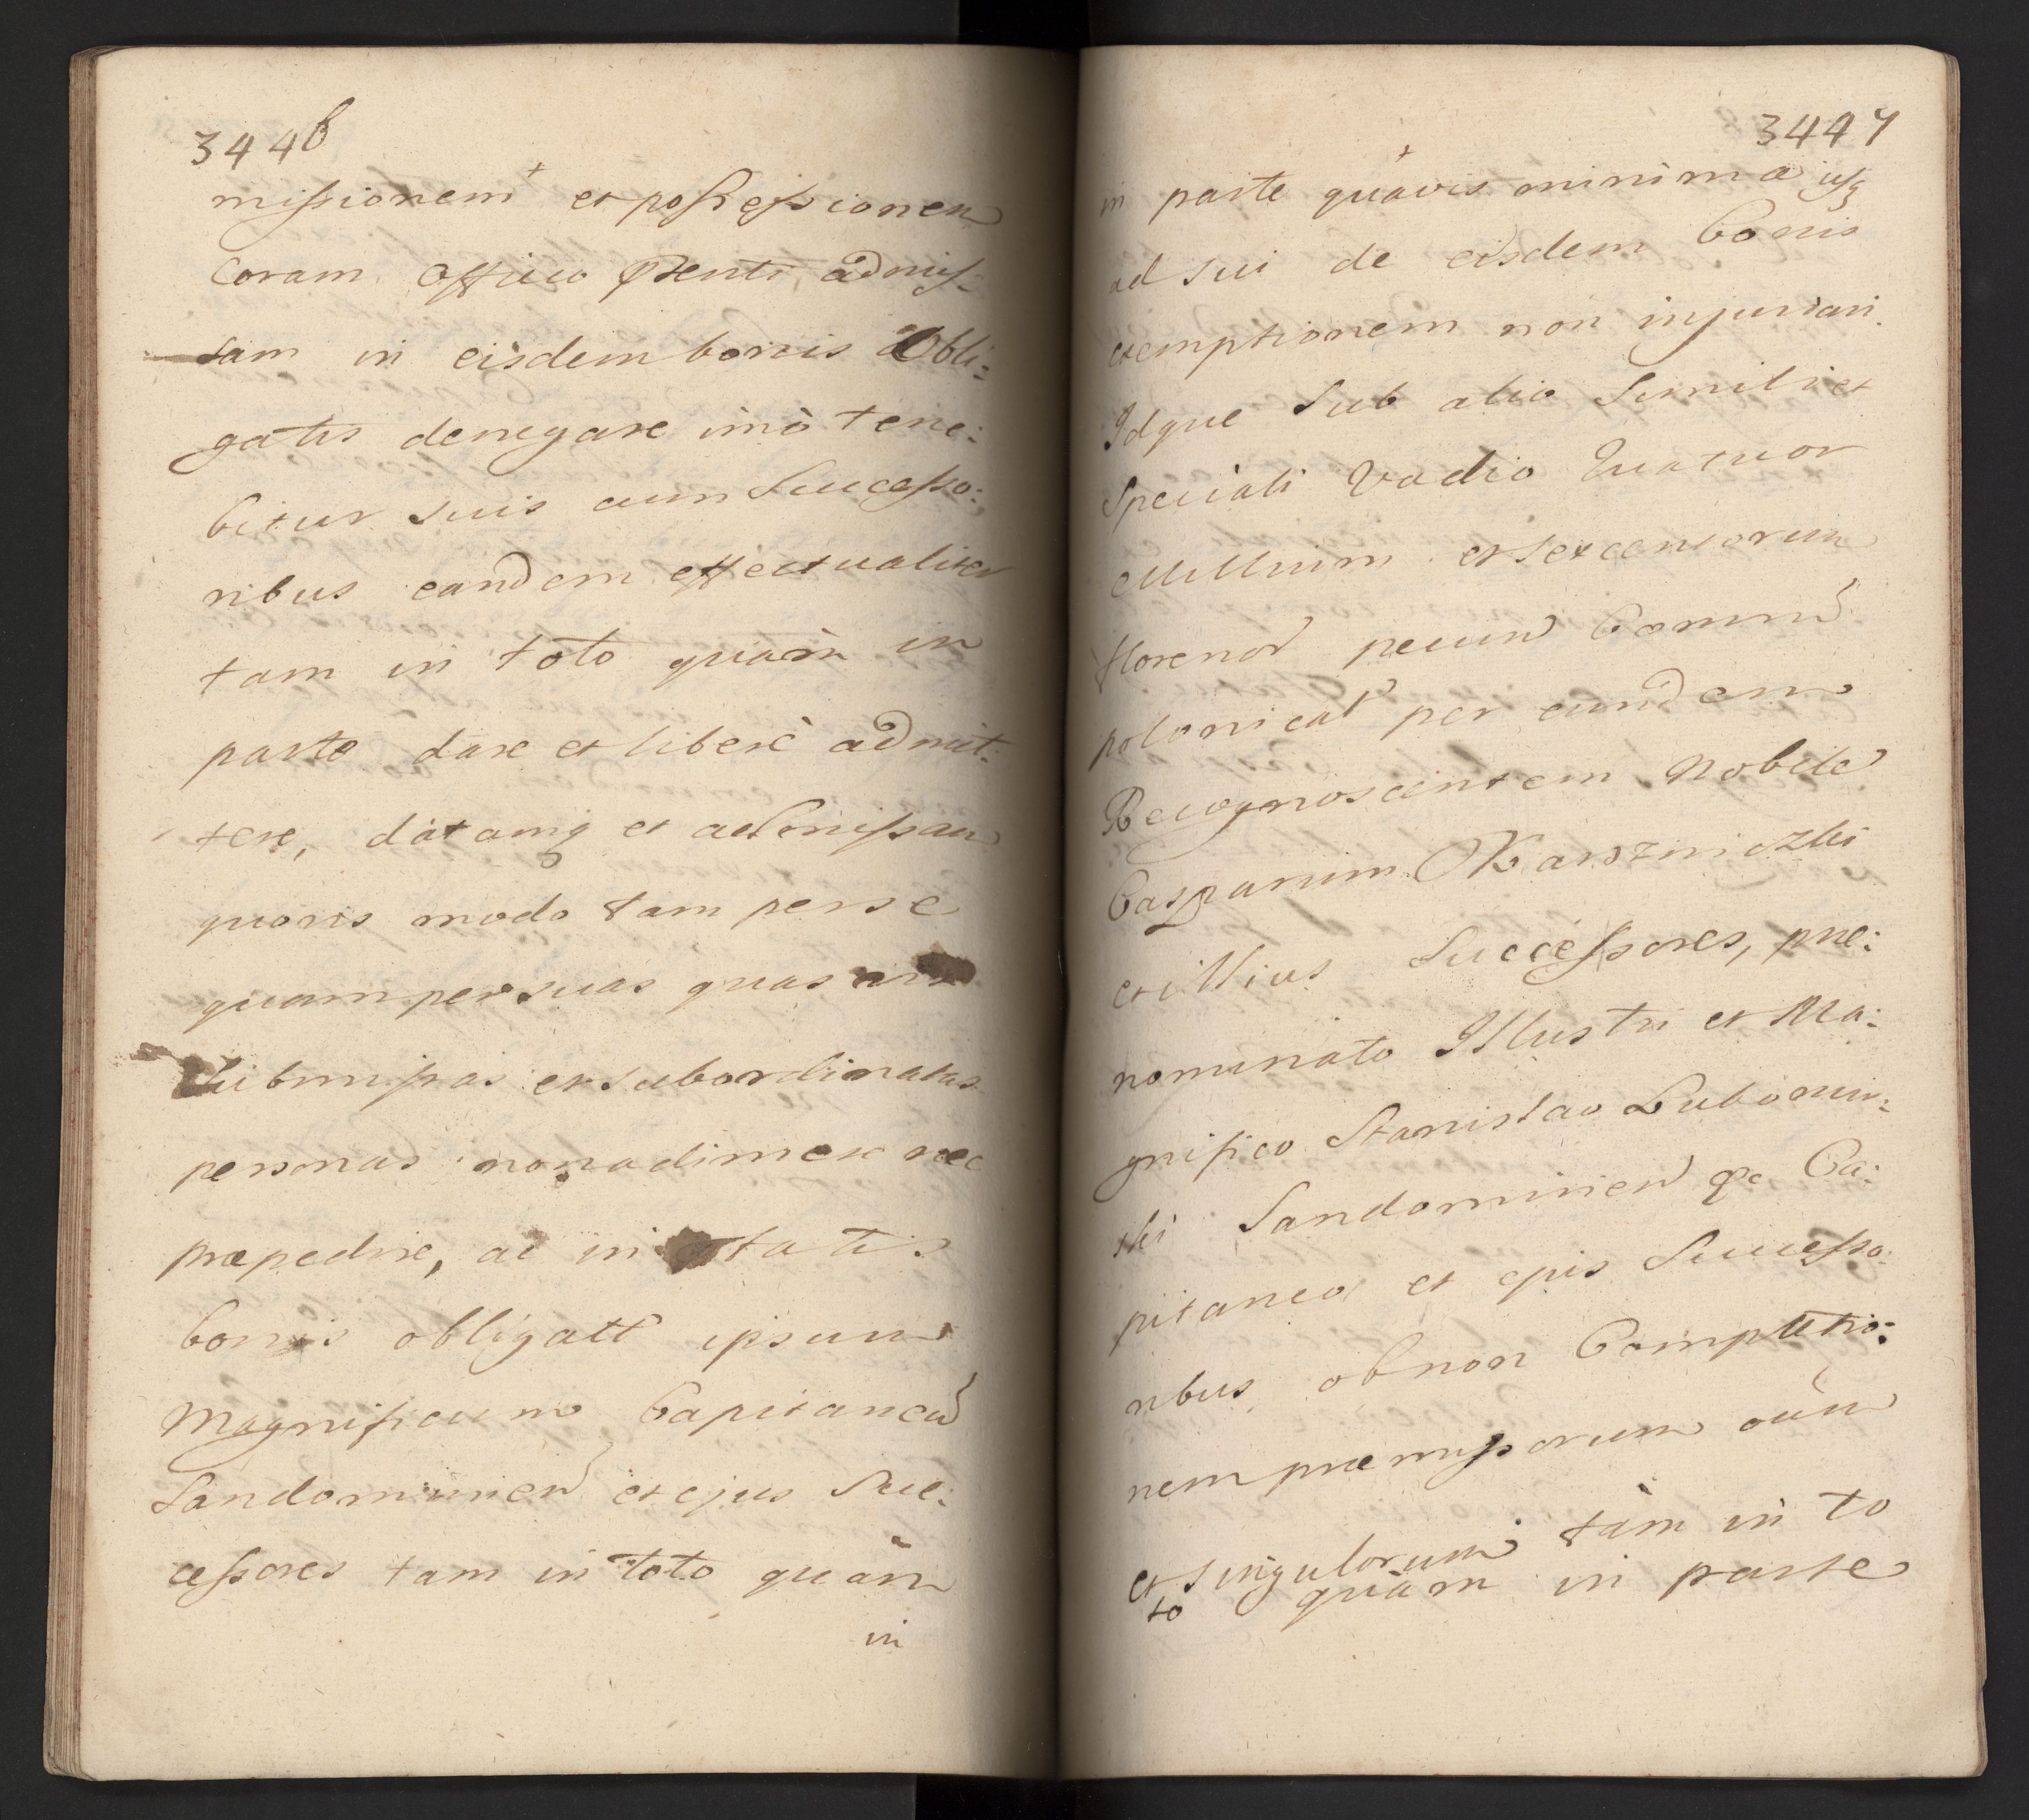 3446
missionem et possessionem
Coram Officio pnti, admis-
sam in eisdem bonis Obli:
gatis denegare imò tene:
bitur suis cum Successo:
ribus eandem effectualiter
tam in toto quàm in
parte dare et liberè admit:
tere, datamq et admissam
quovis modo tam per se
quam per suas quas
subordinatas
personas non adimere nec
præpedire, ac in
bonis obligatt ipsum
Magnificum Capitaneu
Sandomirien et ejus Suc:
cessores tam in toto quàm
in
3447
in parte quavis minima usq
ad sui de eisdem bonis
exemptionem non injuriari.
Idque Sub alio Simili et
Speciali Vadio Quatuor
Millium et sexcentorum
florenor pecun Commu
polonical per eundem
Recognoscentem Nobile
Casparum Karszniczki
et illius Successores, præ:
nominato Illustri et Ma:
gnifico Stanislao Lubomir:
ski Sandomirien &c Ca:
pitaneo et ejus Successo:
ribus ob non Completio:
nem præmissorum oium
et singulorum tàm in to
to quàm in parte